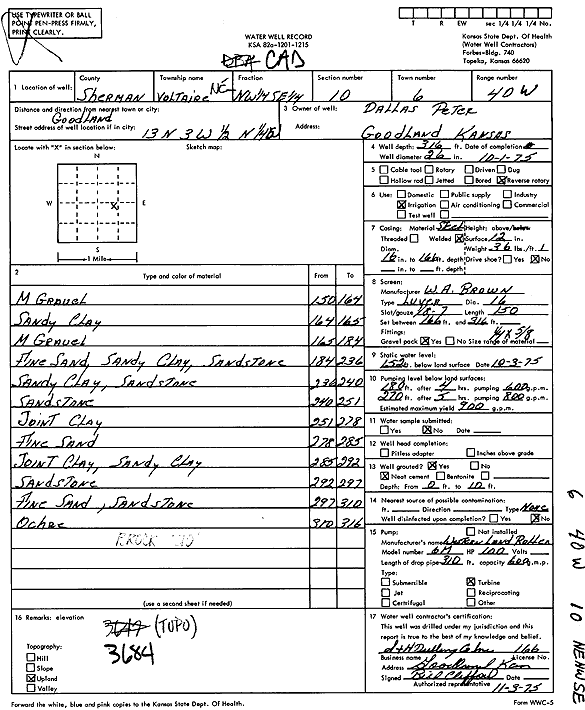 USE TYPEWRITER OR BALL
POINT PEN-PRESS FIRMLY,
PRINT CLEARLY.
T R EW sec 1/4 1/4 1/4 No.
WATER WELL RECORD
KSA 82a-1201-1215
CAD
Kansas State Dept. Of Health
(Water Well Contractors)
Forbes-Bldg. 740
Topeka, Kansas 66620
1 Location of well:
County Township name Fraction Section number Town number Range number
Sherman Voltaire NE NW1/4 SE1/4 10 6 40 W
Distance and direction from nearest town or city:
Goodland
Street address of well location if in city: 13 N 3 W 1/2 N
3 Owner of well: Dallas Peter
Address: Goodland Kansas
Locate with "X" in section below: Sketch map:
N
W X E
S
1 Mile
4 Well depth: 316 ft. Date of completion
Well diameter 26 in. 10-1-75
5 Cable tool Rotary Driven Dug
Hollow rod Jetted Bored X Reverse rotary
6 Use: Domestic Public supply Industry
X Irrigation Air conditioning Commercial
Test well
7 Casing: Material Steel Height: above/below
Threaded Welded X Surface 12 in.
Diam. Weight 36 lbs./ft.
16 in. to 166 ft. depth Drive shoe? Yes X No
in. to ft. depth
2 Type and color of material From To
M Gravel 150 164
Sandy Clay 164 165
M Gravel 165 184
Fine Sand, Sandy Clay, Sandstone 184 236
Sandy Clay, Sandstone 236 240
Sandstone 240 251
Joint Clay 251 278
Fine Sand 278 285
Joint Clay, Sandy Clay 285 292
Sandstone 292 297
Fine Sand, Sandstone 297 310
Ochre 310 316
(use a second sheet if needed)
8 Screen:
Manufacturer W.A. Brown
Type Luver Dia. 16
Slot/gauze 18-7 Length 150
Set between 166 ft. and 316 ft.
Fittings:
Gravel pack X Yes No Size range of material 3/8
9 Static water level:
ft. below land surface Date 10-3-75
10 Pumping level below land surfaces:
180 ft. after 4 hrs. pumping 600 g.p.m.
270 ft. after 5 hrs. pumping 800 g.p.m.
Estimated maximum yield 900 g.p.m.
11 Water sample submitted:
Yes X No Date
12 Well head completion:
Pitless adapter Inches above grade
13 Well grouted? X Yes No
X Neat cement Bentonite
Depth: From 0 ft. to 10 ft.
14 Nearest source of possible contamination:
ft. Direction Type None
Well disinfected upon completion? Yes X No
15 Pump: Not installed
Manufacturer's name Western Land Roller
Model number 6M HP 100 Volts
Length of drop pipe 310 ft. capacity 600 g.m.p.
Type:
Submersible X Turbine
Jet Reciprocating
Certrifugal Other
16 Remarks: elevation
(TOPO)
3684
Topography:
Hill
Slope
X Upland
Valley
17 Water well contractor's certification:
This well was drilled under my jurisdiction and this
report is true to the best of my knowledge and belief.
166
Business name License No.
Address Goodland Kan
Signed
Authorized representative 11-3-75
Forward the white, blue and pink copies to the Kansas State Dept. Of Health.
Form WWC-5
6 40W 10 NENWSE